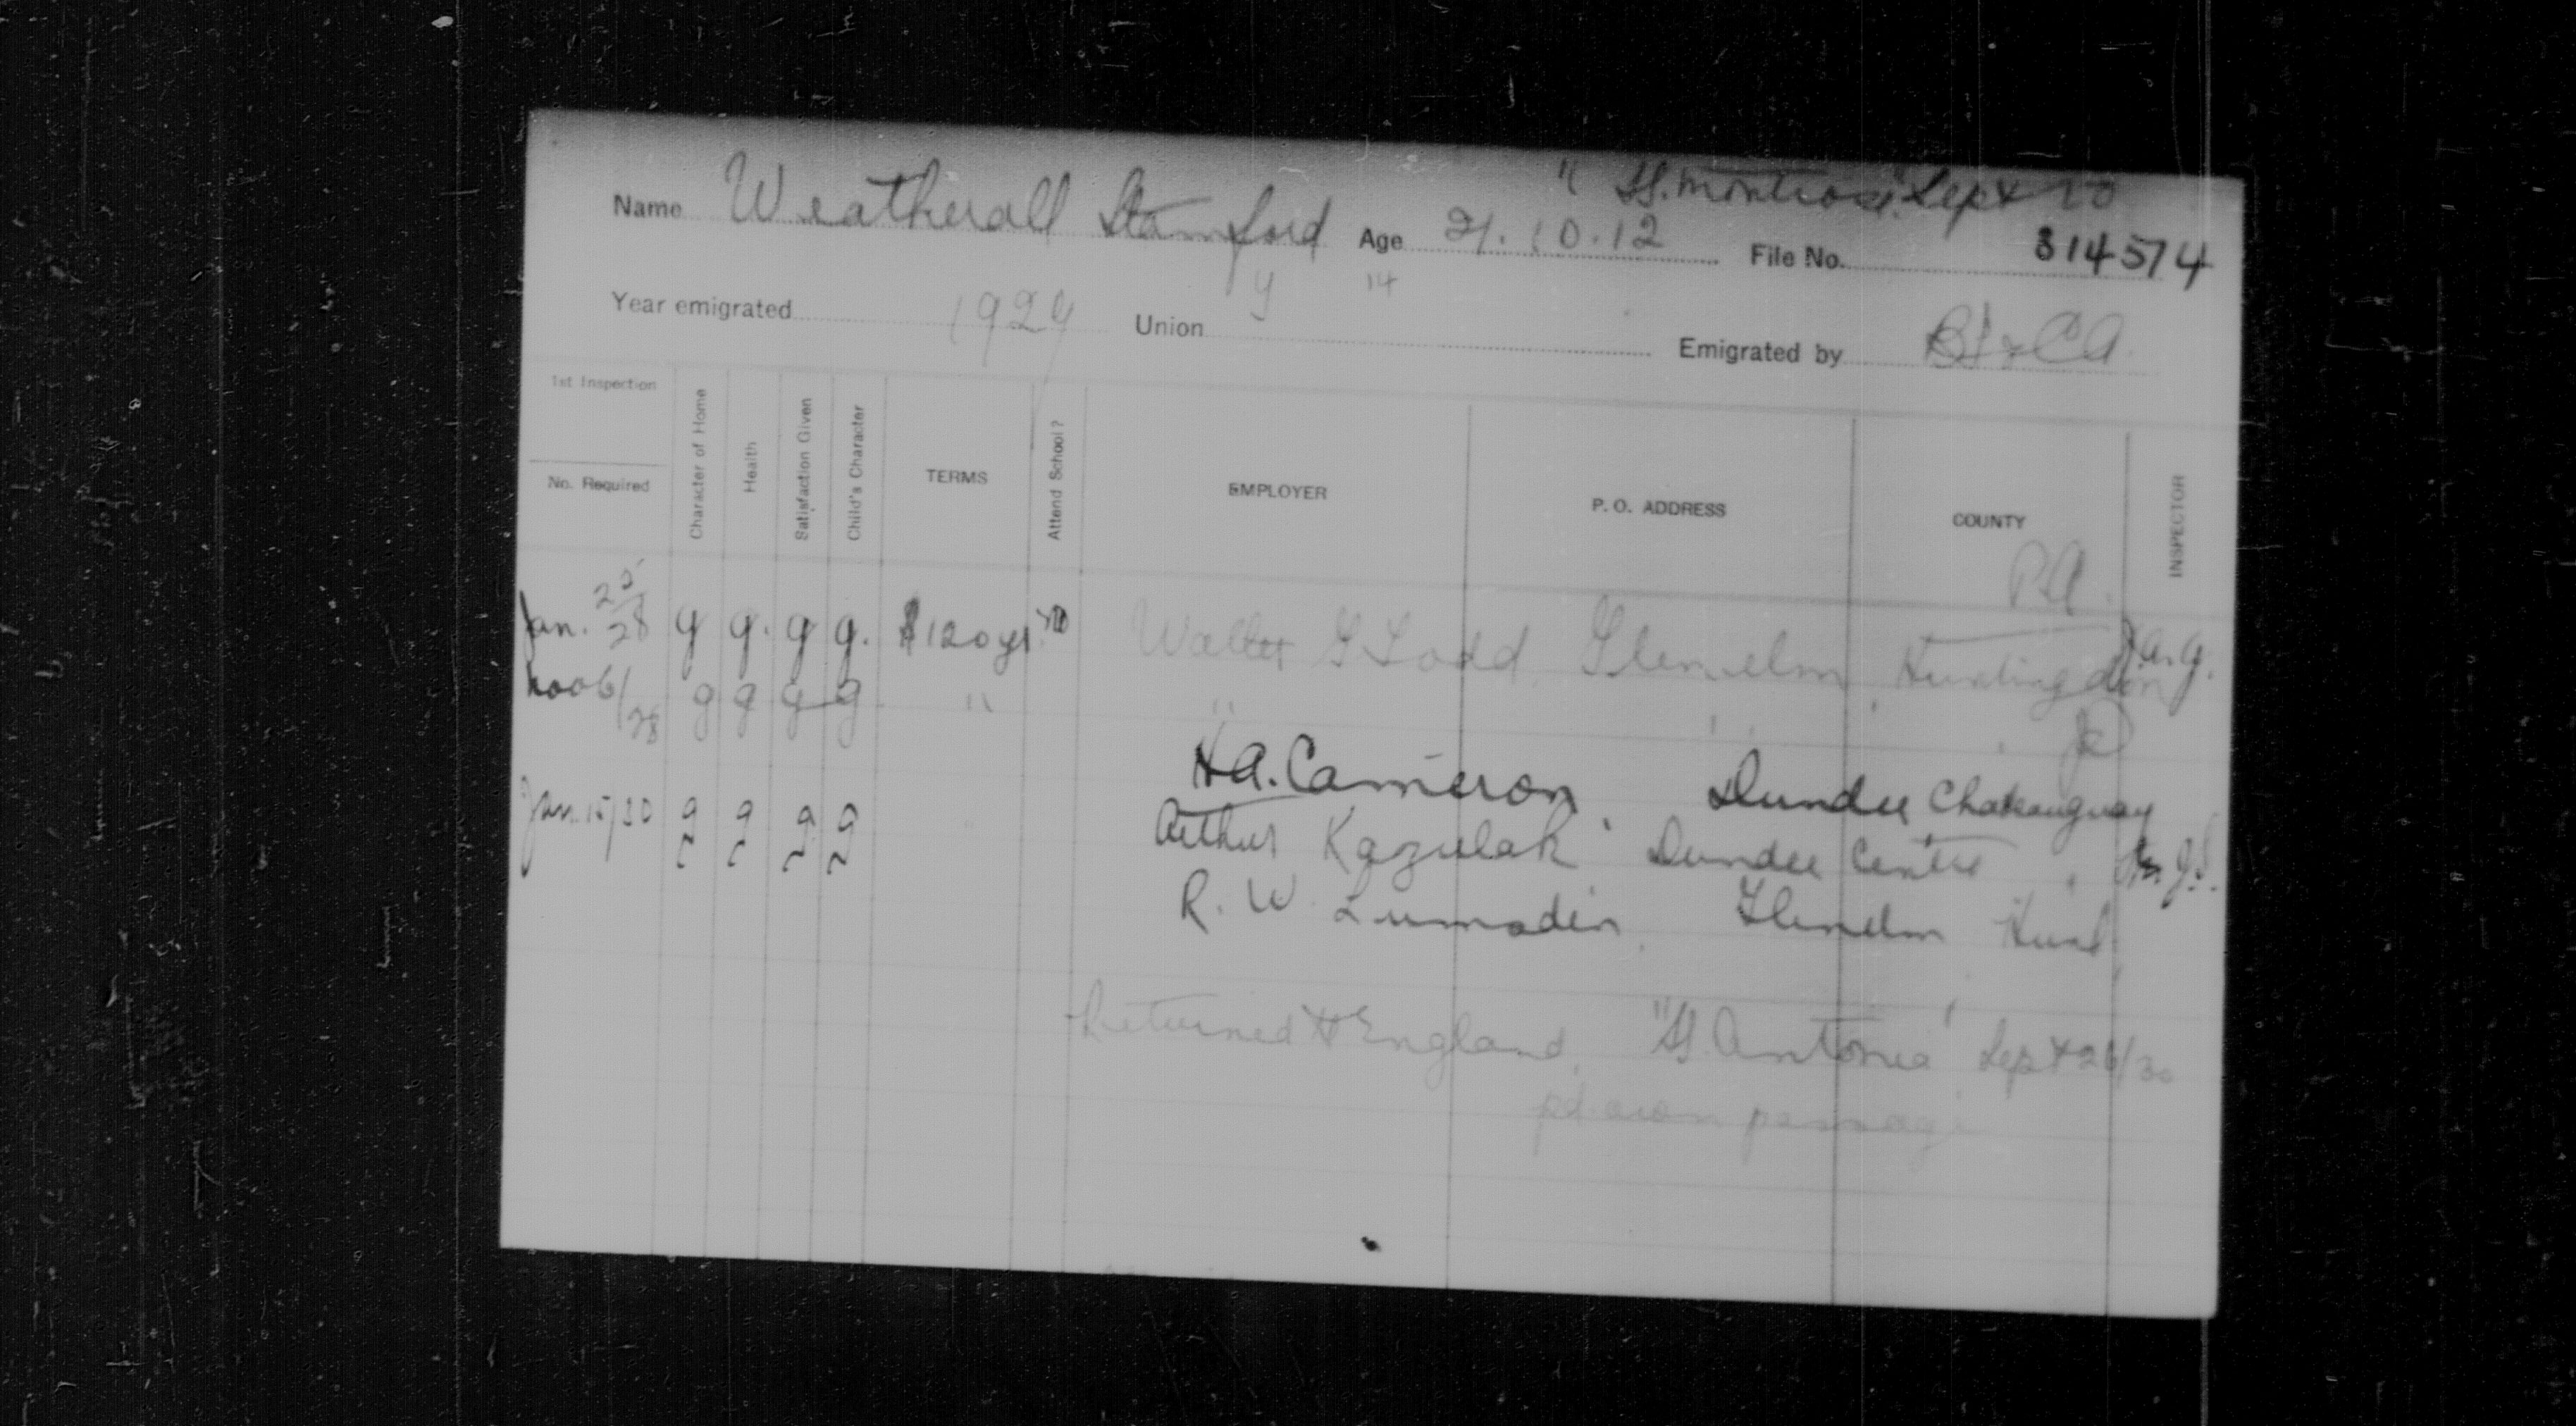 " SS. Montrose" Sept 20
Name Weatherall Stamford Age 21.10.12 File No. 314574
y 14
Year emigrated 1927 Union Emigrated by
1st Inspection
No. Required
Character of Home
Health
Satisfaction Given
Child's Character
TERMS
Attend School?
EMPLOYER
P. O. ADDRESS
COUNTY
INSPECTOR
P.Q.
Jan. 25/28 g g. g g. $120 yr. no Walter G Todd Glenelm Huntingdon
Nov 6/28 g g g g " "
H A. Cameron Dundee Chateauguay
Jan. 15/30 g g g g Arthur Kazulak Dundee Centre
R. W. Lumsden Glenelm Hunt
Returned to England. "SS. Antonia" Sept 26/30
pd. own passage